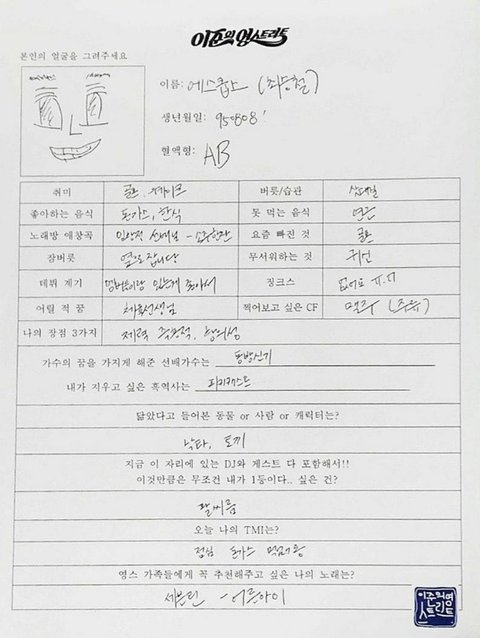 이준의 영스트리트
본인의 얼굴을 그려주세요
이름: 에스쿱스 (최승철)
생년월일: 950808'
혈액형: AB
취미 골프, 버릇/습관
좋아하는 음식 돈가스, 한식 못 먹는 음식 연근
노래방 애창곡 임창정 선배님 - 소주한잔 요즘 빠진 것 골프
잠버릇 옆으로 잡니다 무서워하는 것 귀신
데뷔 계기 멤버들이랑 있는게 좋아서 징크스 없어요 ㅠ.ㅠ
어릴 적 꿈 체육선생님 찍어보고 싶은 CF 맥주 (주류)
나의 장점 3가지 체력 창의성
가수의 꿈을 가지게 해준 선배가수는? 동방신기
내가 지우고 싶은 흑역사는?
닮았다고 들어본 동물 or 사람 or 캐릭터는?
낙타, 토끼
지금 이 자리에 있는 DJ와 게스트 다 포함해서!!
이것만큼은 무조건 내가 1등이다.. 싶은 건?
팔씨름
오늘 나의 TMI는?
점심 돈가스 먹어용
영스 가족들에게 꼭 추천해주고 싶은 나의 노래는?
세븐틴 - 어른아이
이준의영
스트리트